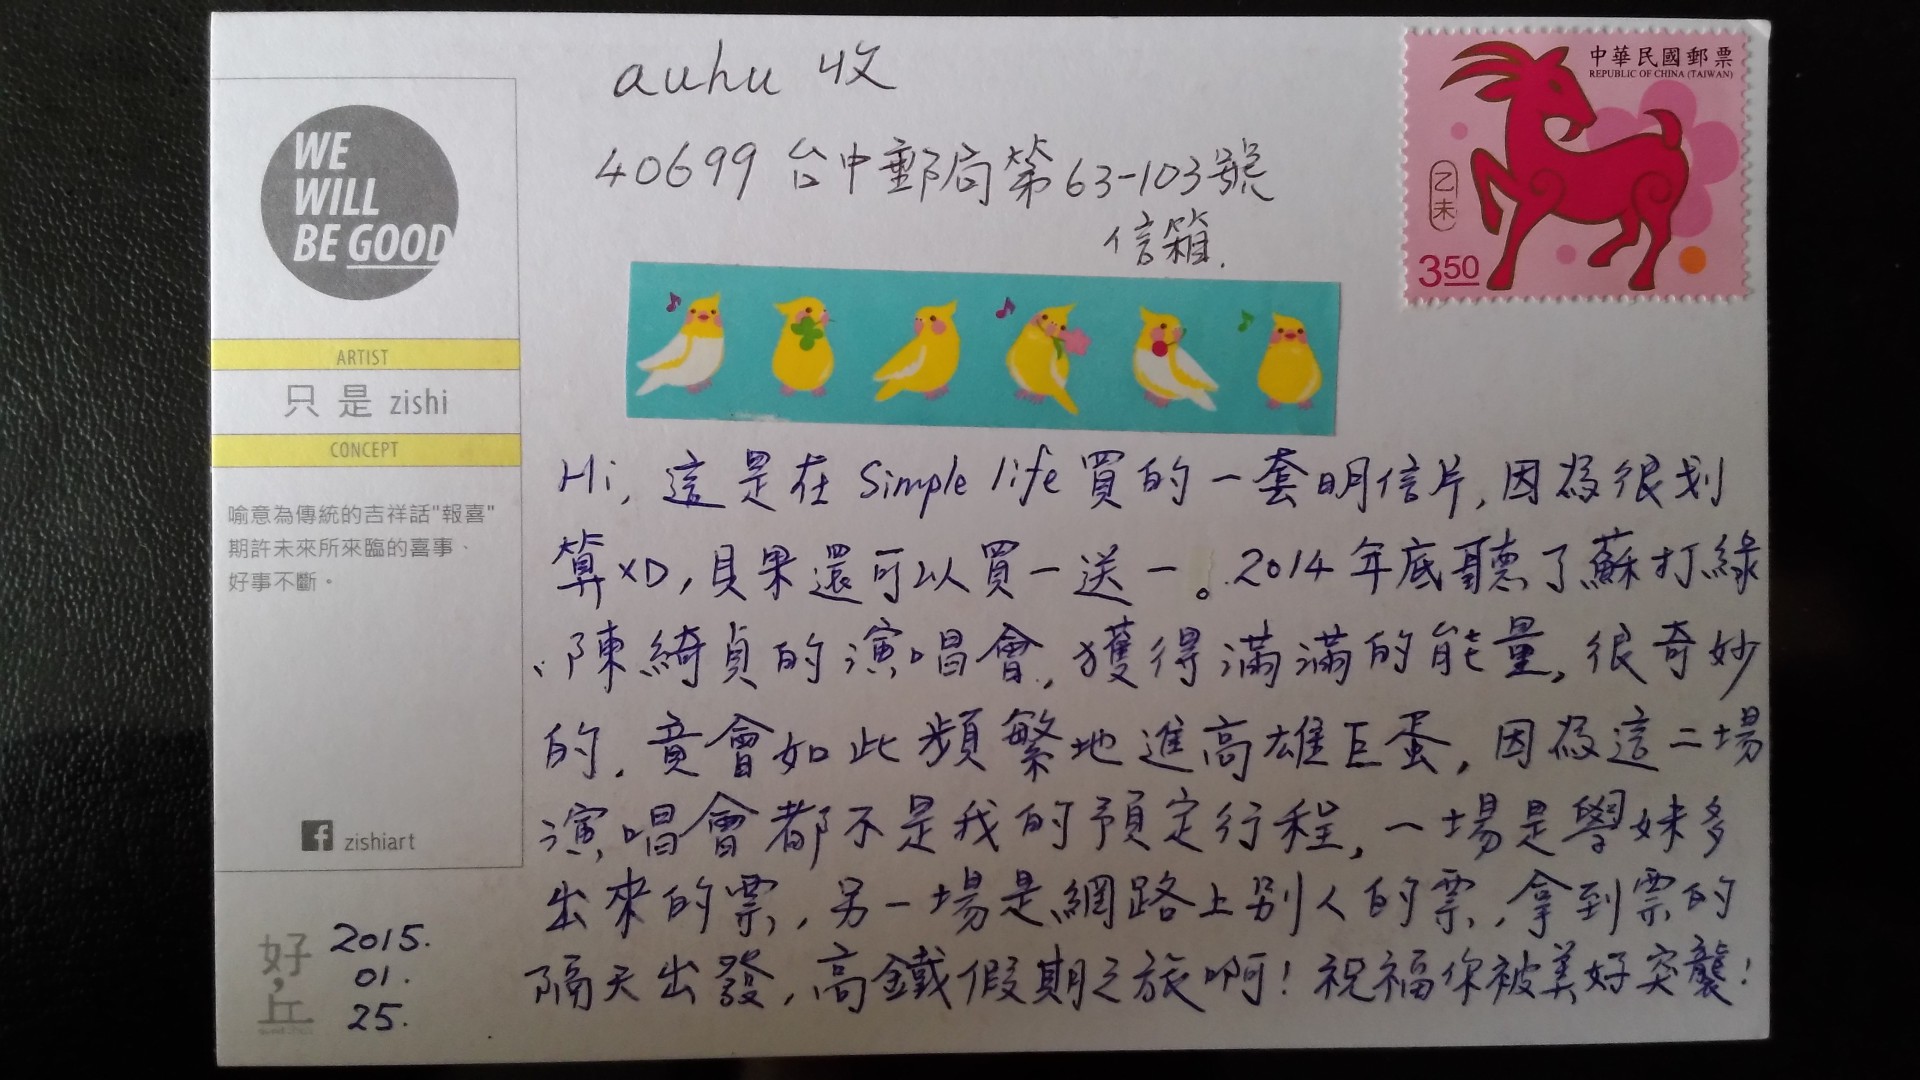 auhu 收
40699 台中郵局第63-103號
信箱.
中華民國郵票
REPUBLIC OF CHINA (TAIWAN)
乙未
350
WE
WILL
BE GOOD
ARTIST
只是 zishi
CONCEPT
喻意為傳統的吉祥話"報喜"
期許未來所來臨的喜事、
好事不斷。
zishiart
好,丘
2015.
01.
25.
Hi, 這是在 Simple life 買的一套明信片, 因為很划
算XD, 貝果還可以買一送一。2014年底聽了蘇打綠
、陳綺貞的演唱會, 獲得滿滿的能量, 很奇妙
的, 竟會如此頻繁地進高雄巨蛋, 因為這二場
演唱會都不是我的預定行程, 一場是學妹多
出來的票, 另一場是網路上別人的票, 拿到票的
隔天出發, 高鐵假期之旅啊! 祝福你被美好突襲!